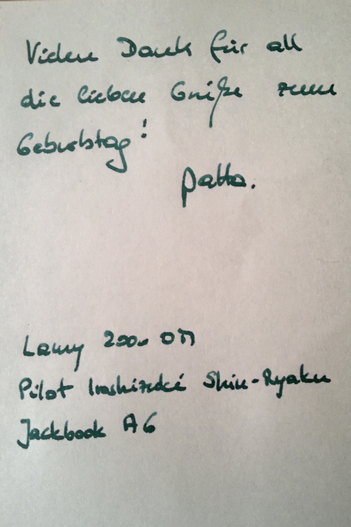 Vielen Dank für all
die lieben Grüße zum
Geburtstag!
patta.
Lamy 2000 OM
Pilot Iroshizuku Shin-Ryoku
Jackbook A6